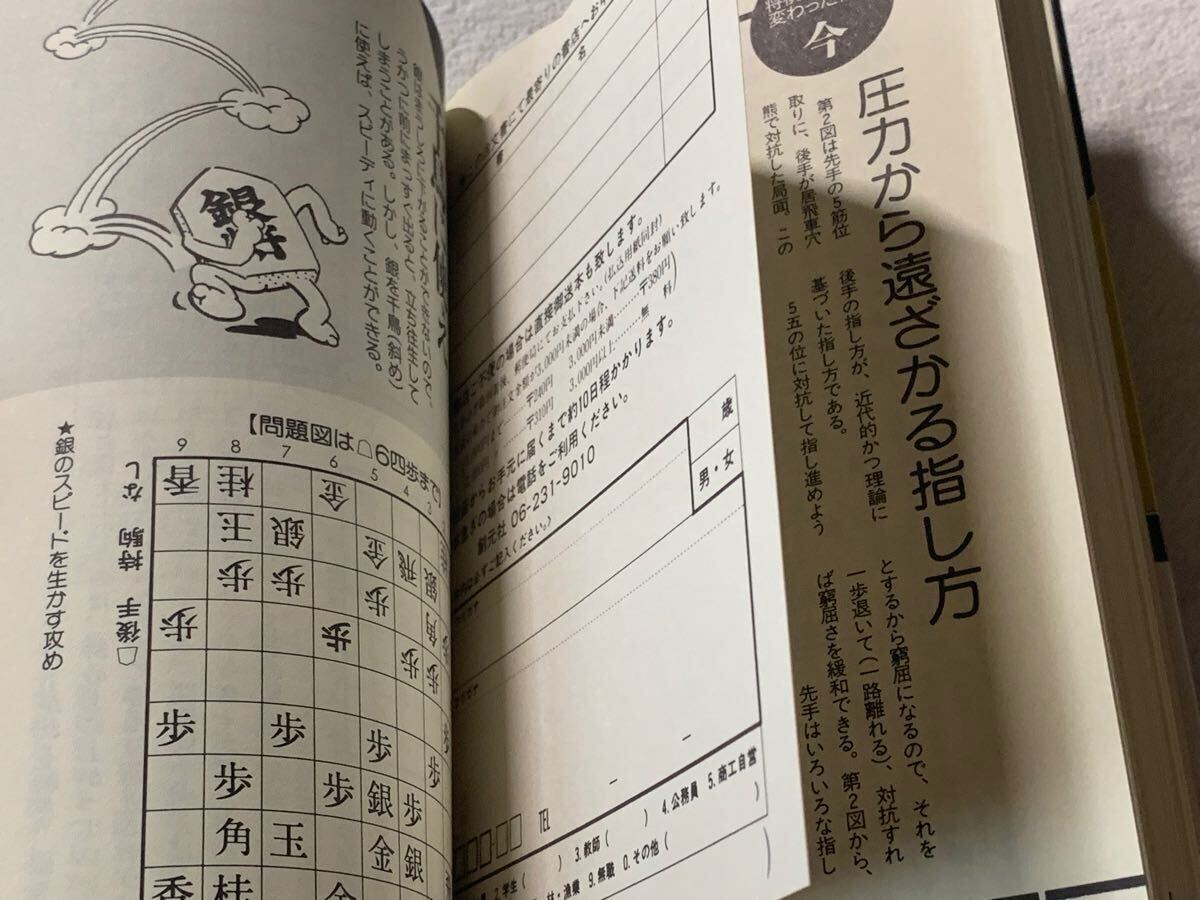 変わった
今
圧力から遠ざかる指し方
第2図は先手の5筋位
取りに、後手が居飛車穴
熊で対抗した局面。この
後手の指し方が、近代的かつ理論に
基づいた指し方である。
5五の位に対抗して指し進めよう
とするから窮屈になるので、それを
一歩退いて(一路離れる)、対抗すれ
ば窮屈さを緩和できる。第2図から、
先手はいろいろな指し
名
書
の場合は直接御送本も致します。
郵便局にてお支払下さい。(払込用紙同封)
3,000円未満の場合、下記送料をお願い致します。
〒240円
3,000円未満……〒380円
〒310円
3,000円以上……無料
お手元に届くまで約10日程かかります。
の場合は電話をご利用ください。
創元社 06-231-9010
ご記入ください。)
歳
男・女
TEL
2.学生( ) 3.教師( ) 4.公務員 5.商工自営
林・漁業 9.無職 0.その他( )
うかつに前にまっすぐ出ると、立ち往生して
しまうことがある。しかし、銀を千鳥(斜め)
に使えば、スピーディに動くことができる。
銀
【問題図は☖6四歩まで】
9 8 7 6 5 4 3
香 桂 金
王 銀 金 飛 銀
歩 歩 歩 角
歩 歩 歩 歩
歩 歩 歩 歩
歩 歩 銀 歩
角 玉 金 銀
香 桂 金
☖後手 持駒 なし
★銀のスピードを生かす攻め